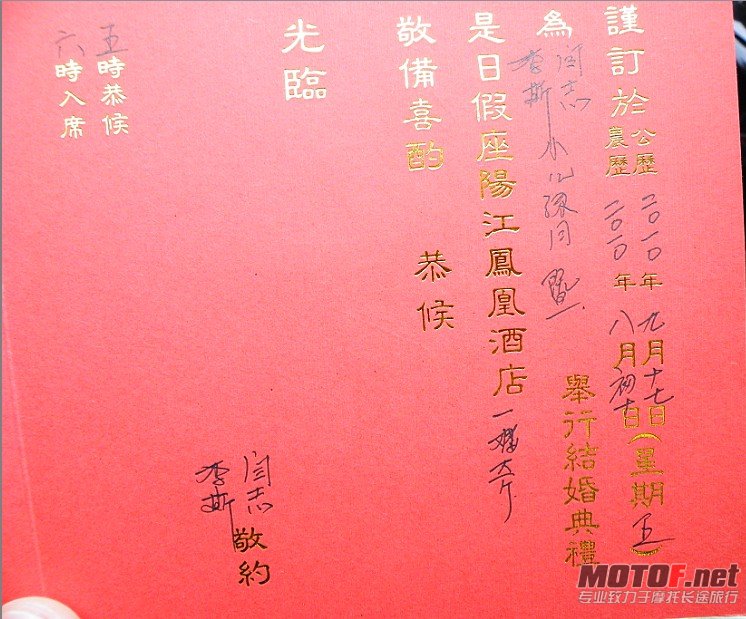 謹訂於公歷二〇一〇年九月十七日(星期五)
農歷二〇一〇年八月初十日
為闫志
李斯
舉行結婚典禮
是日假座陽江鳳凰酒店一楼大厅
敬備喜酌 恭候
光臨
闫志
李斯
敬約
五時恭候
六時入席
MOTOF.net
专业致力于摩托长途旅行